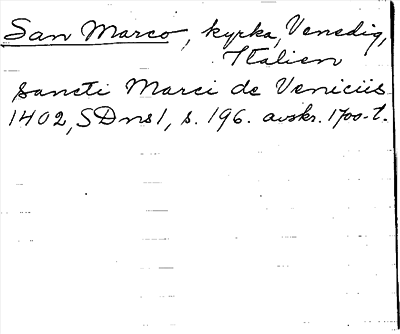 San Marco, kyrka, Venedig,
Italien
sancti Marci de Veniciis
1402, SDns1, s. 196. avskr. 1700-t.